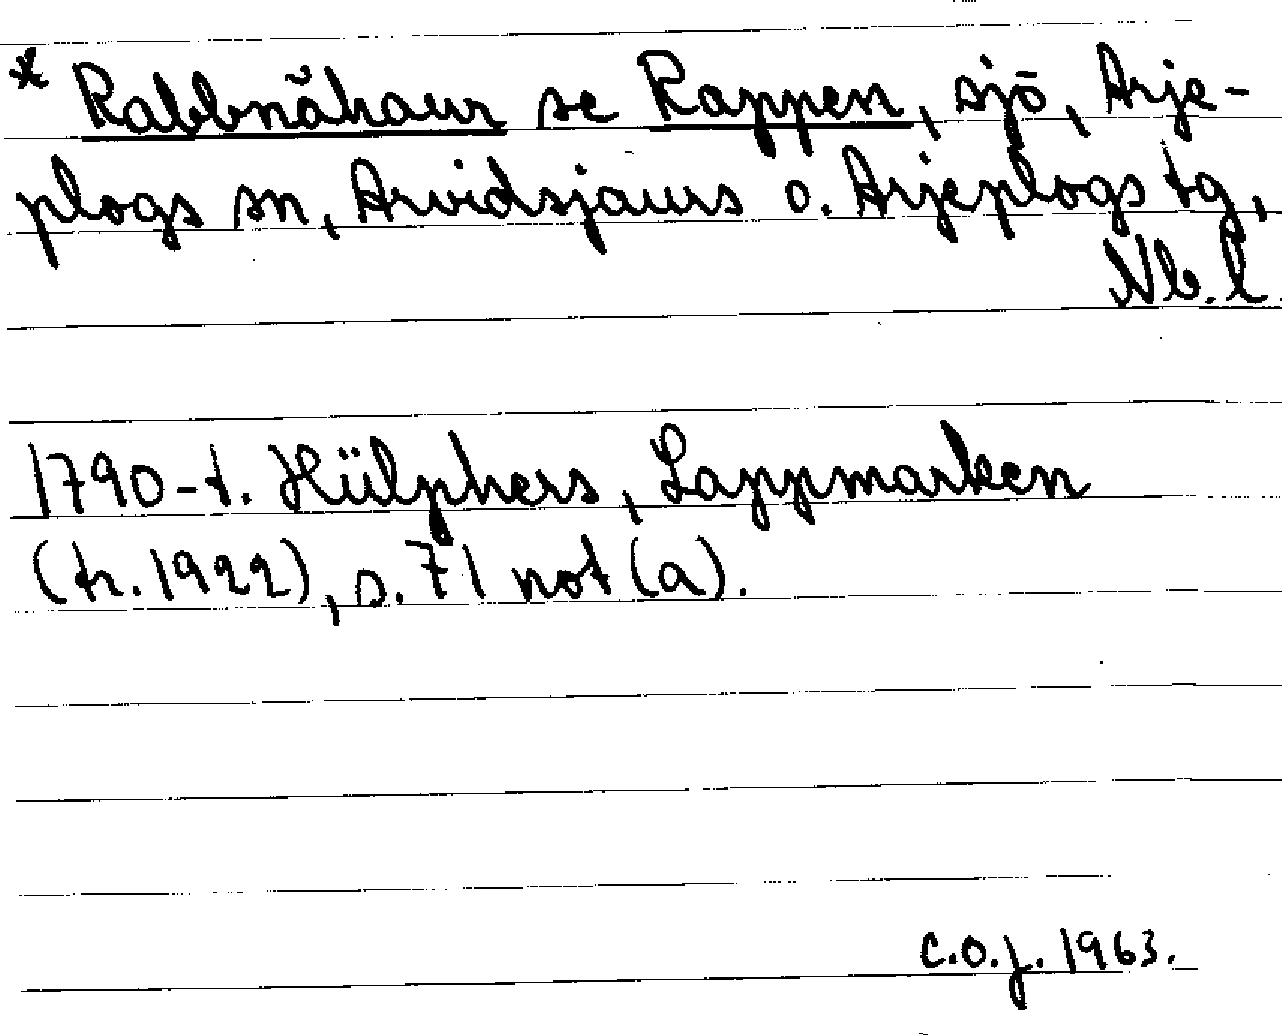 * Rabbnåhaur se Rappen, sjö, Arje-
plogs sn, Arvidsjaurs o. Arjeplogs tg,
Nb. l.
1790-t. Hülphers, Lappmarken
(tr. 1922), s. 71 not (a).
C.O.J. 1963.